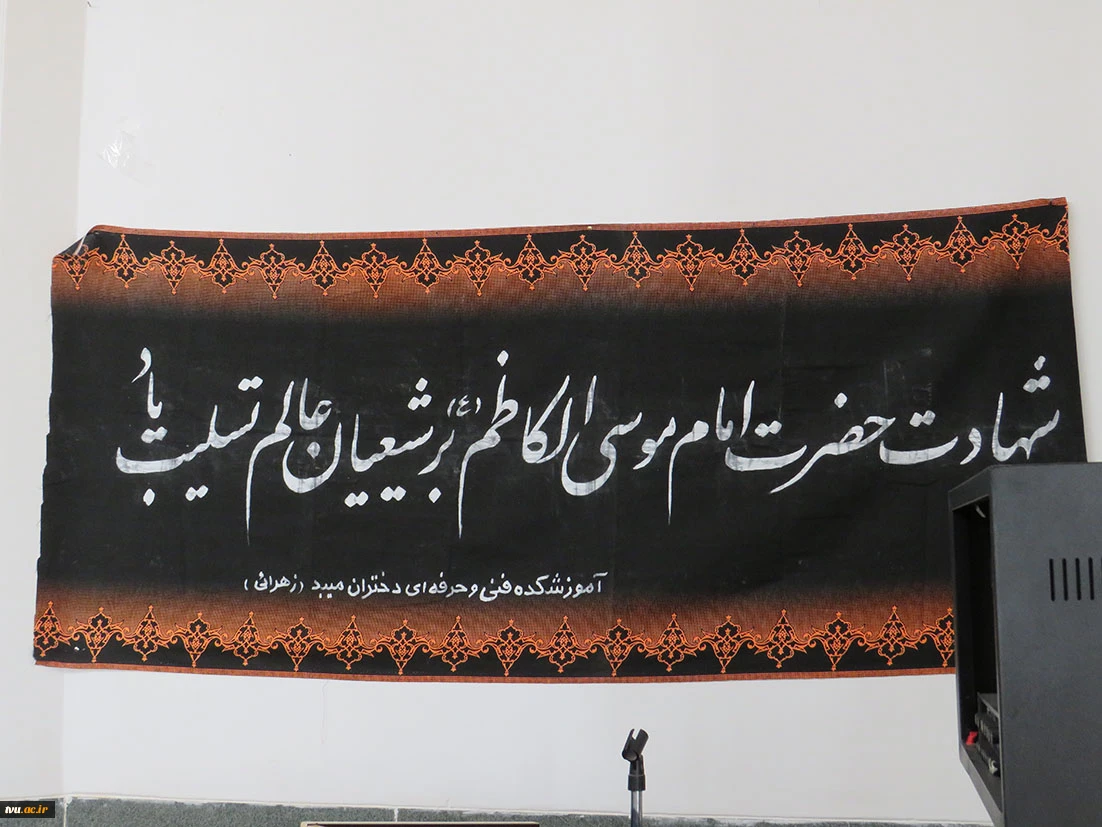 شهادت حضرت امام موسی الکاظم (ع) بر شیعیان عالم تسلیت باد
آموزشکده فنی و حرفه ای دختران میبد (زهرائی)
tvu.ac.ir